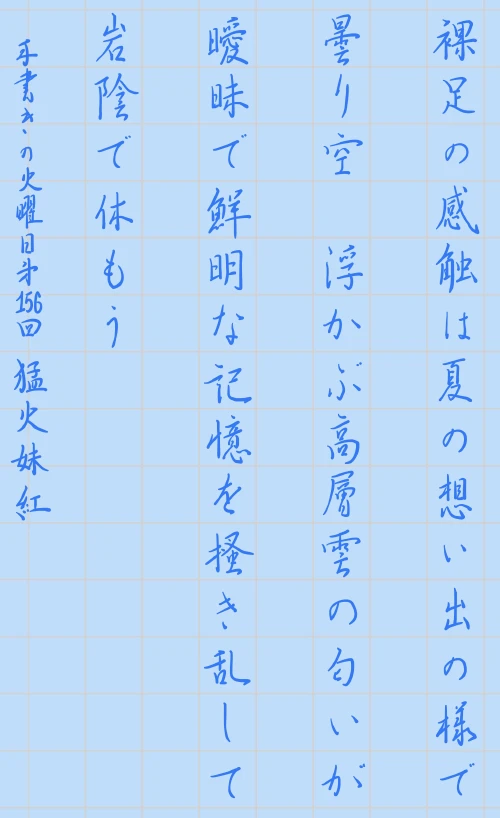 裸足の感触は夏の想い出の様で
曇り空　浮かぶ高層雲の匂いが
曖昧で鮮明な記憶を掻き乱して
岩陰で休もう
手書きの火曜日第156回 猛火妹紅